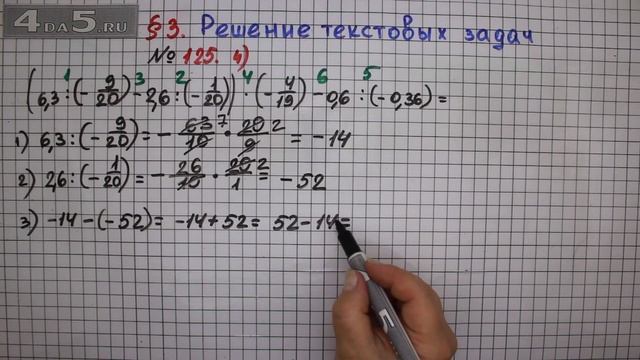 4DA5.RU
§3. Решение текстовых задач
№125. 4)
1 3 2 4 6 5
(6,3:(-9/20)-2,6:(-1/20))·(-4/19)-0,6:(-0,36)=
1) 6,3:(-9/20)=-63/10·20/9=-14
7 2
2) 2,6:(-1/20)=-26/10·20/1=-52
2
3) -14-(-52)=-14+52=52-14=